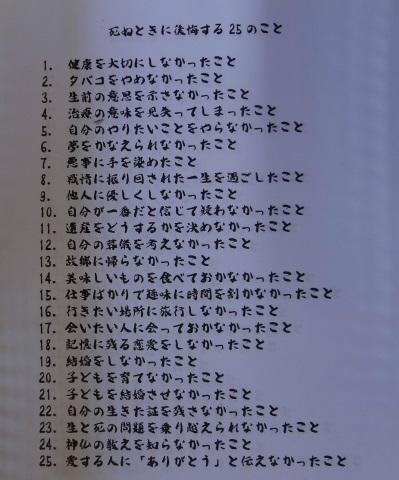 死ぬときに後悔する25のこと
1. 健康を大切にしなかったこと
2. タバコをやめなかったこと
3. 生前の意思を示さなかったこと
4. 治療の意味を見失ってしまったこと
5. 自分のやりたいことをやらなかったこと
6. 夢をかなえられなかったこと
7. 悪事に手を染めたこと
8. 感情に振り回された一生を過ごしたこと
9. 他人に優しくしなかったこと
10. 自分が一番だと信じて疑わなかったこと
11. 遺産をどうするかを決めなかったこと
12. 自分の葬儀を考えなかったこと
13. 故郷に帰らなかったこと
14. 美味しいものを食べておかなかったこと
15. 仕事ばかりで趣味に時間を割かなかったこと
16. 行きたい場所に旅行しなかったこと
17. 会いたい人に会っておかなかったこと
18. 記憶に残る恋愛をしなかったこと
19. 結婚をしなかったこと
20. 子どもを育てなかったこと
21. 子どもを結婚させなかったこと
22. 自分の生きた証を残さなかったこと
23. 生と死の問題を乗り越えられなかったこと
24. 神仏の教えを知らなかったこと
25. 愛する人に「ありがとう」と伝えなかったこと